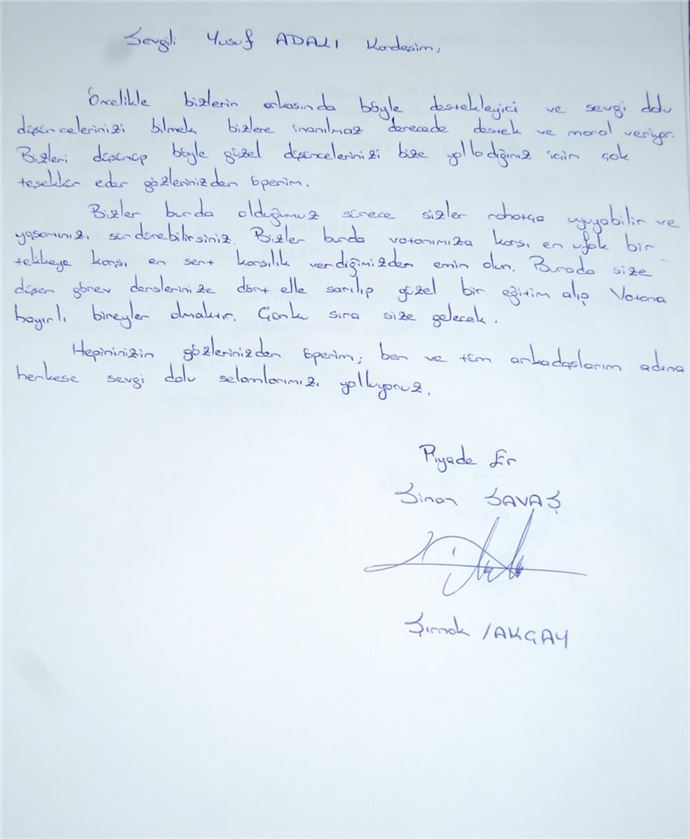 Sevgili Yusuf ADALI Kardeşim,
Öncelikle bizlerin arkasında böyle destekleyici ve sevgi dolu
düşüncelerinizi bilmek bizlere inanılmaz derecede destek ve moral veriyor.
Bizleri düşünüp böyle güzel düşüncelerinizi bize yolladığınız için çok
teşekkür eder gözlerinizden öperim.
Bizler burda olduğumuz sürece sizler rahatça uyuyabilir ve
yaşamınızı sürdürebilirsiniz. Bizler burda vatanımıza karşı en ufak bir
tehlikeye karşı en sert karşılık verdiğimizden emin olun. Burada size
düşen görev derslerinize dört elle sarılıp güzel bir eğitim alıp Vatana
hayırlı bireyler olmaktır. Çünkü sıra size gelecek.
Hepininizin gözlerinizden öperim, ben ve tüm arkadaşlarım adına
herkese sevgi dolu selamlarımızı yolluyoruz.
Piyade Er
Sinan SAVAŞ
Şırnak / AKÇAY